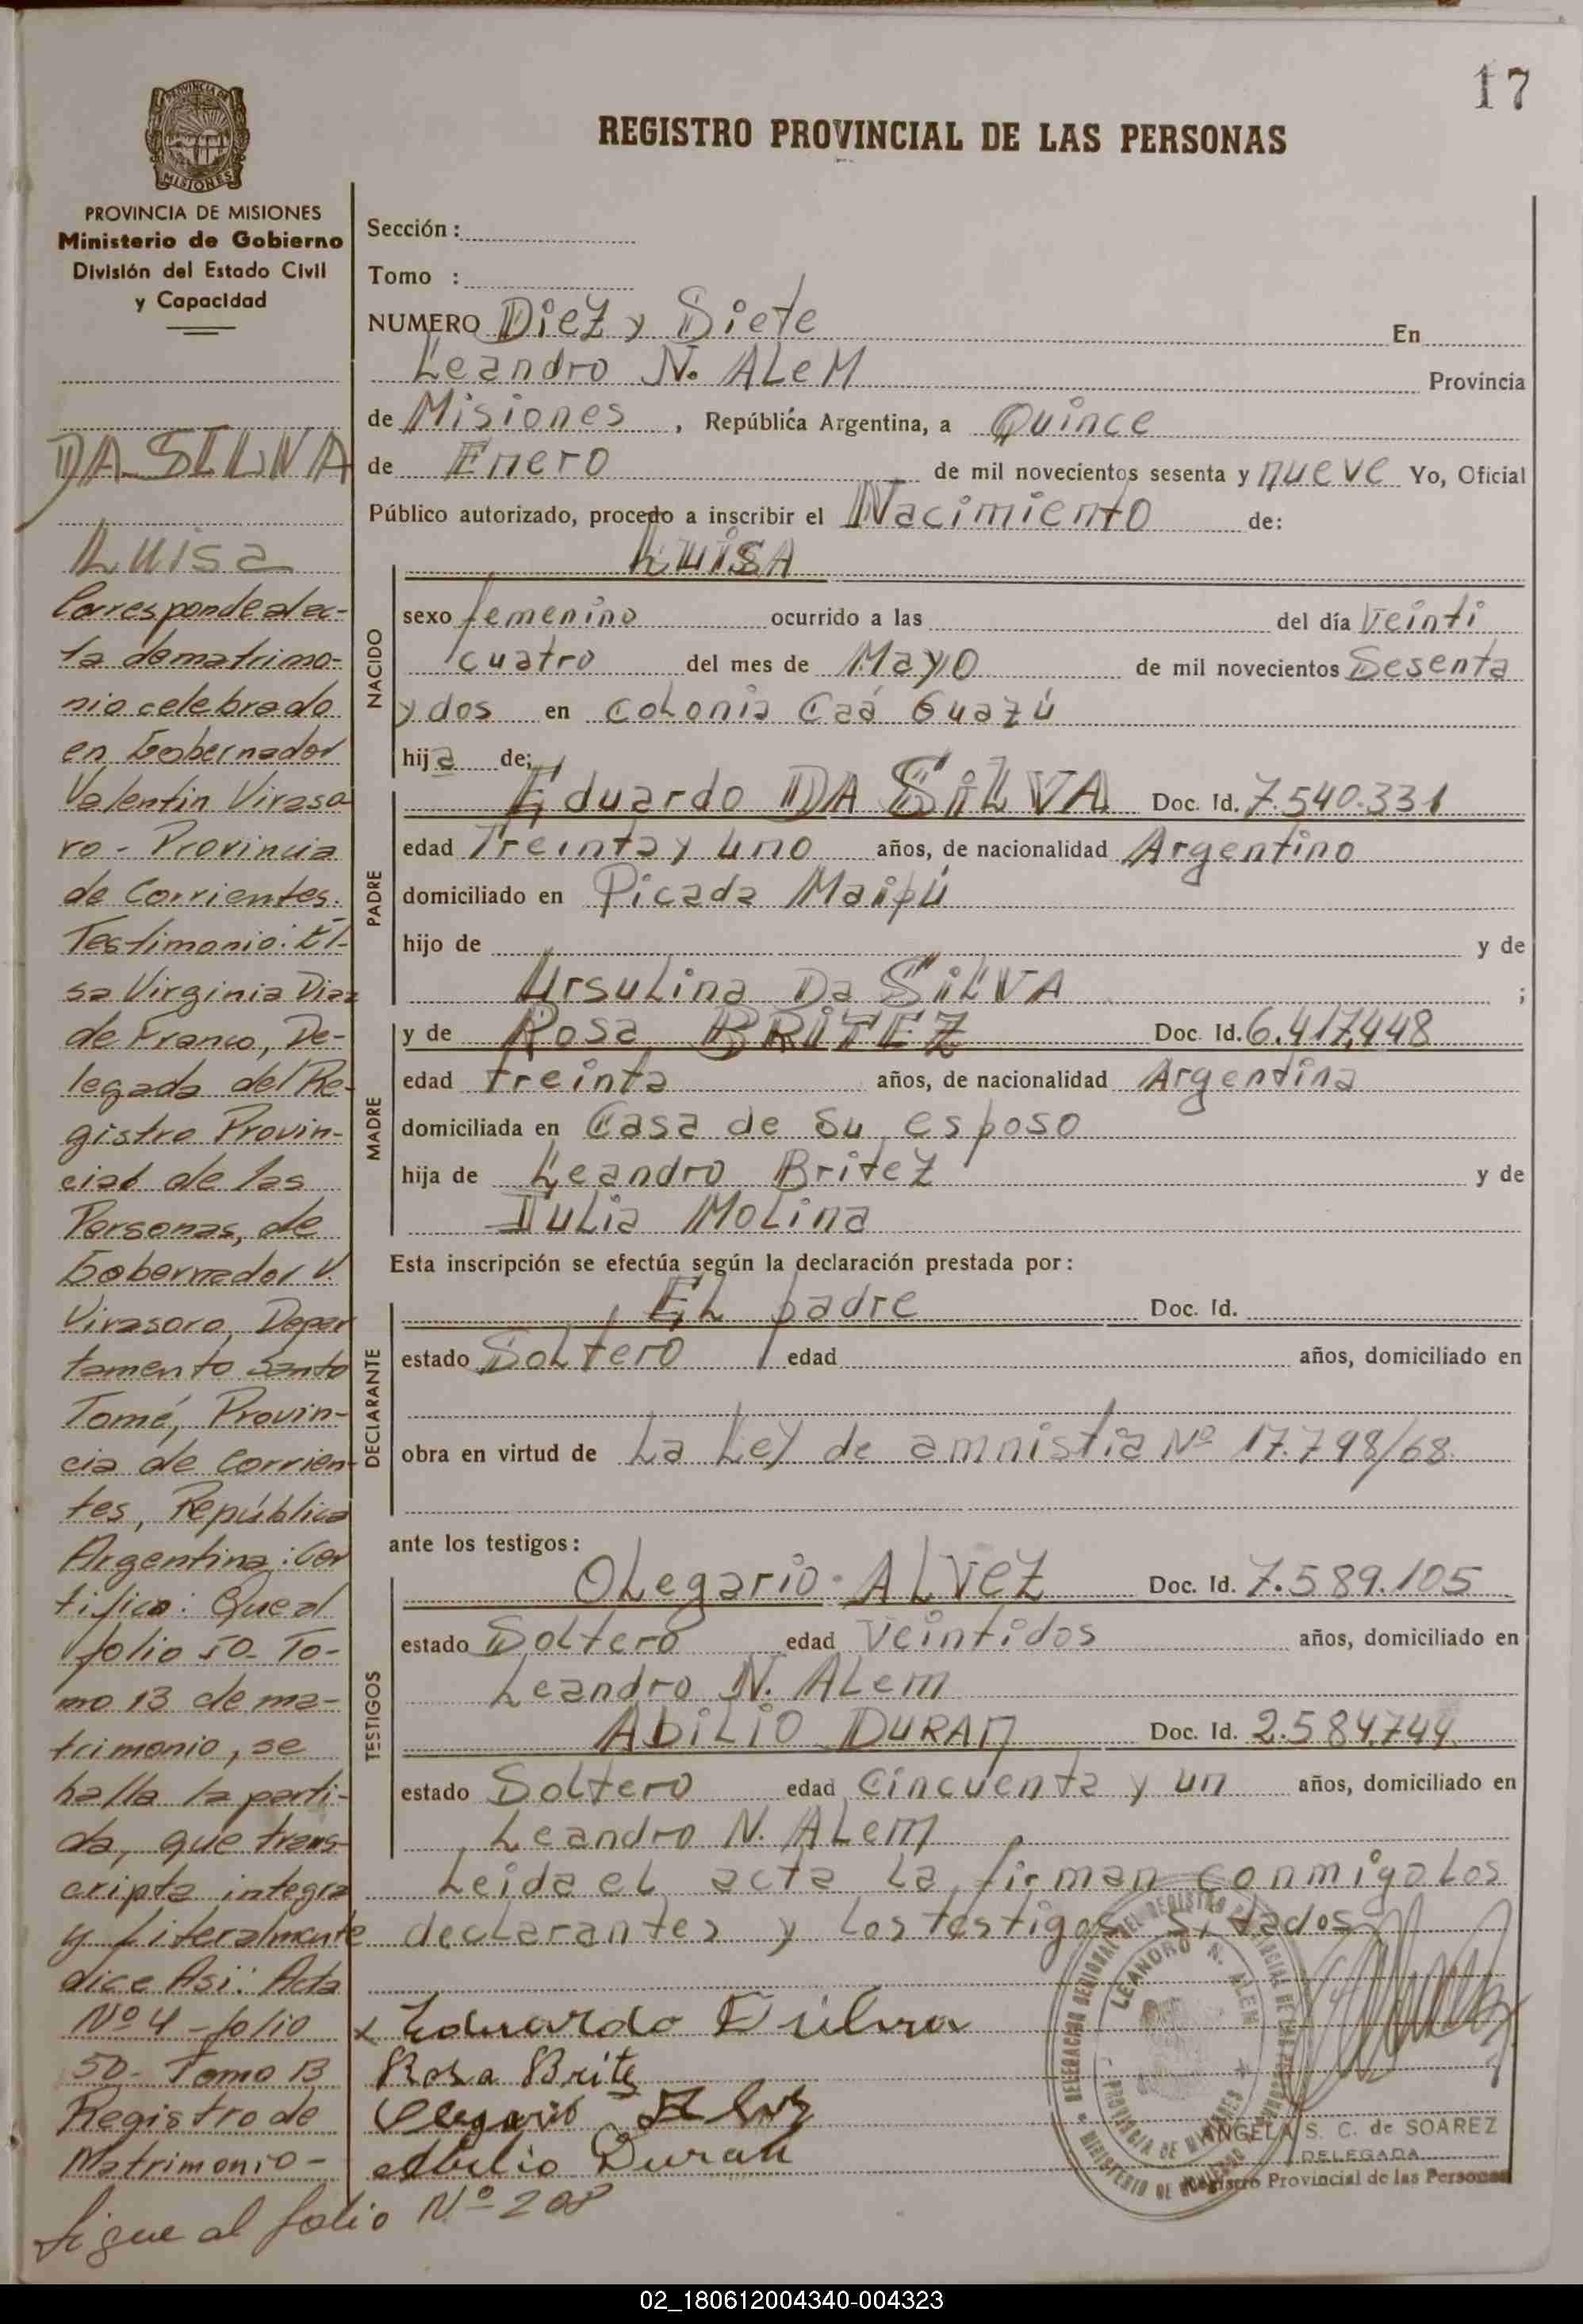 17
REGISTRO PROVINCIAL DE LAS PERSONAS
PROVINCIA DE MISIONES
PROVINCIA DE MISIONES
Ministerio de Gobierno
División del Estado Civil
y Capacidad
DA SILVA
Luisa
Corresponde al ac-
ta de matrimo-
nio celebrado
en Gobernador
Valentin Viraso
ro - Provincia
de Corrientes.
Testimonio: El-
sa Virginia Diaz
de Franco, De-
legada del Re-
gistro Provin-
cial de las
Personas, de
Gobernador V.
Virasoro, Depar
tamento Santo
Tomé, Provin-
cia de Corrien-
tes, República
Argentina: Cer
tifico: Que al
folio 50- To-
mo 13 de ma-
trimonio, se
halla la parti-
da, que trans-
cripta integra
y literalmente
dice Asi: Acta
Nº 4 - folio
50- Tomo 13
Registro de
Matrimonio -
Sigue al folio Nº 208
Sección :
Tomo :
NUMERO Diez y Siete En
Leandro N. ALeM Provincia
de Misiones , República Argentina, a Quince
de Enero de mil novecientos sesenta y nueve Yo, Oficial
Público autorizado, procedo a inscribir el Nacimiento de:
NACIDO
LUISA
sexo femenino ocurrido a las del día Veinti
cuatro del mes de Mayo de mil novecientos Sesenta
y dos en Colonia Caá Guazú
hija de;
PADRE
Eduardo DA SiLVA Doc. Id. 7.540.331
edad Treinta y uno años, de nacionalidad Argentino
domiciliado en Picada Maipú
hijo de y de
Ursulina Da SiLVA ;
MADRE
y de Rosa BRITEZ Doc. Id. 6.417.448
edad treinta años, de nacionalidad Argentina
domiciliada en Casa de su esposo
hija de Leandro Britez y de
Julia Molina
Esta inscripción se efectúa según la declaración prestada por :
DECLARANTE
EL padre Doc. Id.
estado Soltero edad años, domiciliado en
obra en virtud de La Ley de amnistia Nº 17.798/68.
ante los testigos :
TESTIGOS
Olegario ALVeZ Doc. Id. 7.589.105
estado Soltero edad Veintidos años, domiciliado en
Leandro N. ALem
AbiLiO DURAN Doc. Id. 2.584.744
estado Soltero edad Cincuenta y un años, domiciliado en
Leandro N. ALem
Leida el acta la firman conmigo los
declarantes y los testigos
x Eduardo
Rosa Brite
Abilio Duran
DELEGACION REGIONAL DEL REGISTRO PROVINCIAL DE LAS PERSONAS
LEANDRO N. ALEM
PROVINCIA DE MISIONES
MINISTERIO DE GOBIERNO
ANGELA S. C. de SOAREZ
DELEGADA
Registro Provincial de las Personas
02_180612004340-004323